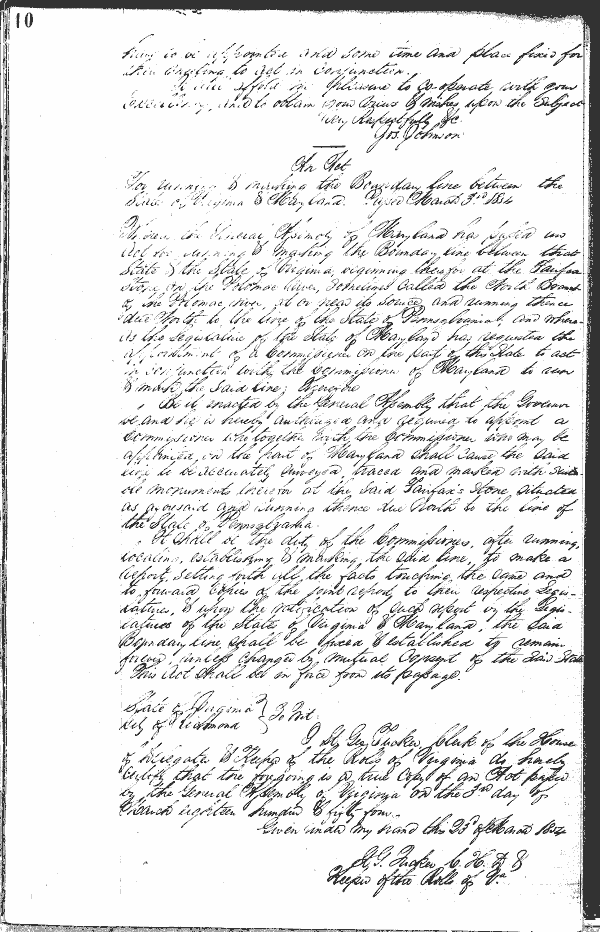 10
to be appointed and some time and place fixed for
their meeting to act in conjunction.
afford me pleasure to co-operate with your
Excellency, and to obtain your views & wishes upon the subject
Very Respectfully &c
Jos. Johnson
An Act
For running & marking the Boundary line between the
State of Virginia & Maryland. Passed March 3rd 1854
Whereas the General Assembly of Maryland has passed an
Act for running & marking the Boundary line between that
State & the State of Virginia, beginning therefor at the Fairfax
stone on the Potomac river, sometimes called the North Branch
of the Potomac river, at or near its source and running thence
due North to the line of the State of Pennsylvania, and where-
as the Legislature of the State of Maryland has requested the
appointment of a Commissioner on the part of this State to act
in conjunction with the Commissioner of Maryland to run
& mark the said line; Therefore
Be it enacted by the General Assembly that the Governor
be and he is hereby authorized and required to appoint a
Commissioner who together with the Commissioner who may be
appointed on the part of Maryland shall cause the said
line to be accurately surveyed, traced and marked with suita-
ble monuments thereon at the said Fairfax's Stone, situated
as aforesaid and running thence due North to the line of
the State of Pennsylvania.
It shall be the duty of the Commissioners, after running,
locating, establishing & marking the said line, to make a
report, setting forth all the facts touching the same and
to forward copies of the joint report to their respective Legis-
latures, & upon the ratification of such report by the Legis-
latures of the State of Virginia & Maryland, the said
Boundary line shall be fixed & established to remain
forever, unless changed by mutual consent of the said States
This Act shall be in force from its passage.
State of Virginia
City of Richmond } To Wit.
I, St Geo. Tucker, Clerk of the House
of Delegates & Keeper of the Rolls of Virginia do hereby
certify that the foregoing is a true copy of an Act passed
by the General Assembly of Virginia on the 3rd day of
March eighteen hundred & fifty four.
Given under my hand this 23d of March 1854
St G. Tucker C. H. D &
Keeper of the Rolls of Va.